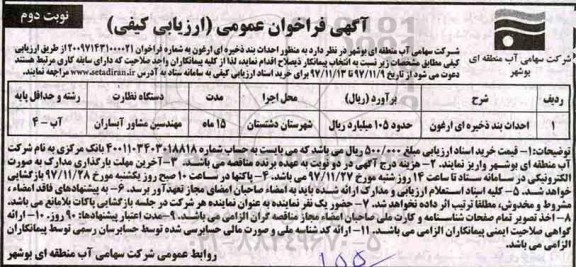 نوبت دوم
آگهی فراخوان عمومی (ارزیابی کیفی)
شرکت سهامی آب منطقه ای بوشهر
شرکت سهامی آب منطقه ای بوشهر در نظر دارد به منظور احداث بند ذخیره ای ارغون به شماره فراخوان ۲۰۰۹۷۱۴۳۱۰۰۰۰۲۱ از طریق ارزیابی
کیفی مطابق مشخصات زیر نسبت به انتخاب پیمانکار ذیصلاح اقدام نماید، لذا از کلیه پیمانکاران واجد صلاحیت که دارای سابقه کاری مرتبط هستند
دعوت می شود از تاریخ ۹۷/۱۱/۹ تا ۹۷/۱۱/۱۳ برای خرید اسناد ارزیابی کیفی به سامانه ستاد به آدرس www.setadiran.ir مراجعه نمایند.
ردیف شرح برآورد (ریال) محل اجرا مدت دستگاه نظارت رشته و حداقل پایه
۱ احداث بند ذخیره ای ارغون حدود ۱۰۵ میلیارد ریال شهرستان دشتستان ۱۵ ماه مهندسین مشاور آبساران آب - ۴
توضیحات: ۱- قیمت خرید اسناد ارزیابی مبلغ ۵۰۰/۰۰۰ ریال می باشد که می بایست به حساب شماره ۴۰۰۱۱۰۳۴۰۳۰۱۸۸۱۸ بانک مرکزی به نام شرکت
آب منطقه ای بوشهر واریز نمایند. ۲- هزینه درج آگهی در دو نوبت به عهده برنده مناقصه می باشد. ۳- آخرین مهلت بارگذاری مدارک به صورت
الکترونیکی در سامانه ستاد تا ساعت ۱۴ روز شنبه مورخ ۹۷/۱۱/۲۷ می باشد. ۴- پاکتها در ساعت ۱۰ صبح روز یکشنبه مورخ ۹۷/۱۱/۲۸ بازگشایی
خواهد شد. ۵- کلیه اسناد استعلام ارزیابی و مدارک ارائه شده باید به امضاء صاحبان امضای مجاز تعهدآور برسد. ۶- به پیشنهادهای فاقد امضاء،
مشروط و مخدوش، مطلقا ترتیب اثر داده نخواهد شد. ۷- حضور یک نفر نماینده به عنوان نماینده هر شرکت در جلسه بازگشایی پاکات بلامانع می باشد.
۸- اخذ تصویر تمام صفحات شناسنامه و کارت ملی صاحبان امضاء مجاز مناقصه گران الزامی می باشد. ۹- مدت اعتبار پیشنهادها: ۹۰ روز. ۱۰- ارائه
گواهی صلاحیت ایمنی پیمانکاران الزامی می باشد. ۱۱- ارائه کد شناسه ملی و صورت مالی حسابرسی شده توسط حسابرسان رسمی توسط پیمانکاران
الزامی می باشد.
روابط عمومی شرکت سهامی آب منطقه ای بوشهر